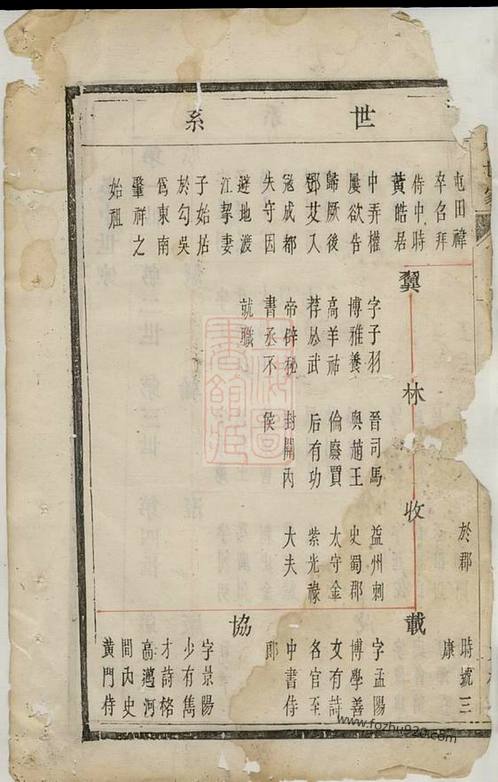 世系
屯田禕
卒召拜
侍中時
黃皓居
中弄權
屢欲告
歸厥後
鄧艾入
寇成都
失守因
避地渡
江挈妻
子始居
於勾吳
爲東南
肇祥之
始祖
翼
字子羽
博雅養
高羊祜
荐於武
帝辟秘
書丞不
就職
林
晉司馬
輿趙王
倫廢賈
后有功
封關內
侯
收
益州刺
史蜀郡
太守金
紫光祿
大夫
於郡
時號三
康
載
字孟陽
博學善
文有詩
名官至
中書侍
郎
協
字景陽
少有雋
才詩格
高邁河
間內史
黃門侍
www.fozhu920.com